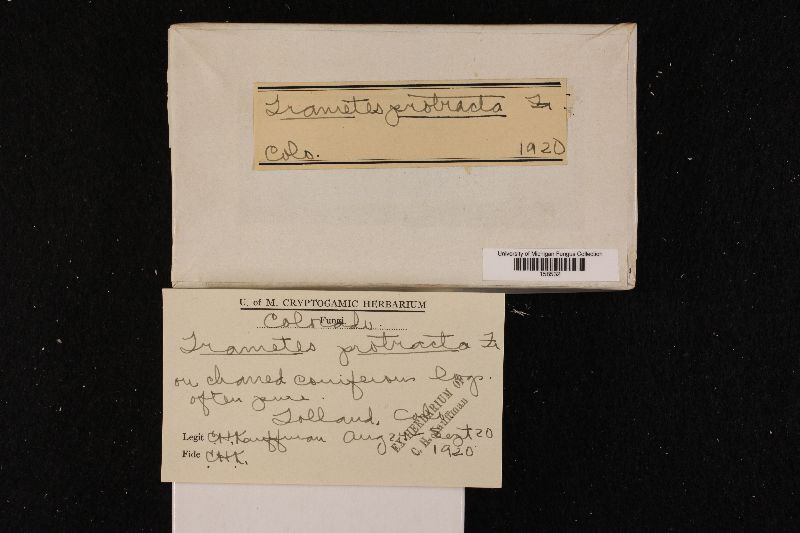 Trametes protracta Fr.
Colo. 1920
University of Michigan Fungus Collection
U. of M. CRYPTOGAMIC HERBARIUM
Fungi
Colorado.
Trametes protracta Fr
on charred coniferous logs.
often pure.
Tolland, Colo.
Legit C.H. Kauffman Aug Sept 20
Fide C.H.K. 1920
EX HERBARIUM OF
C. H. Kauffman